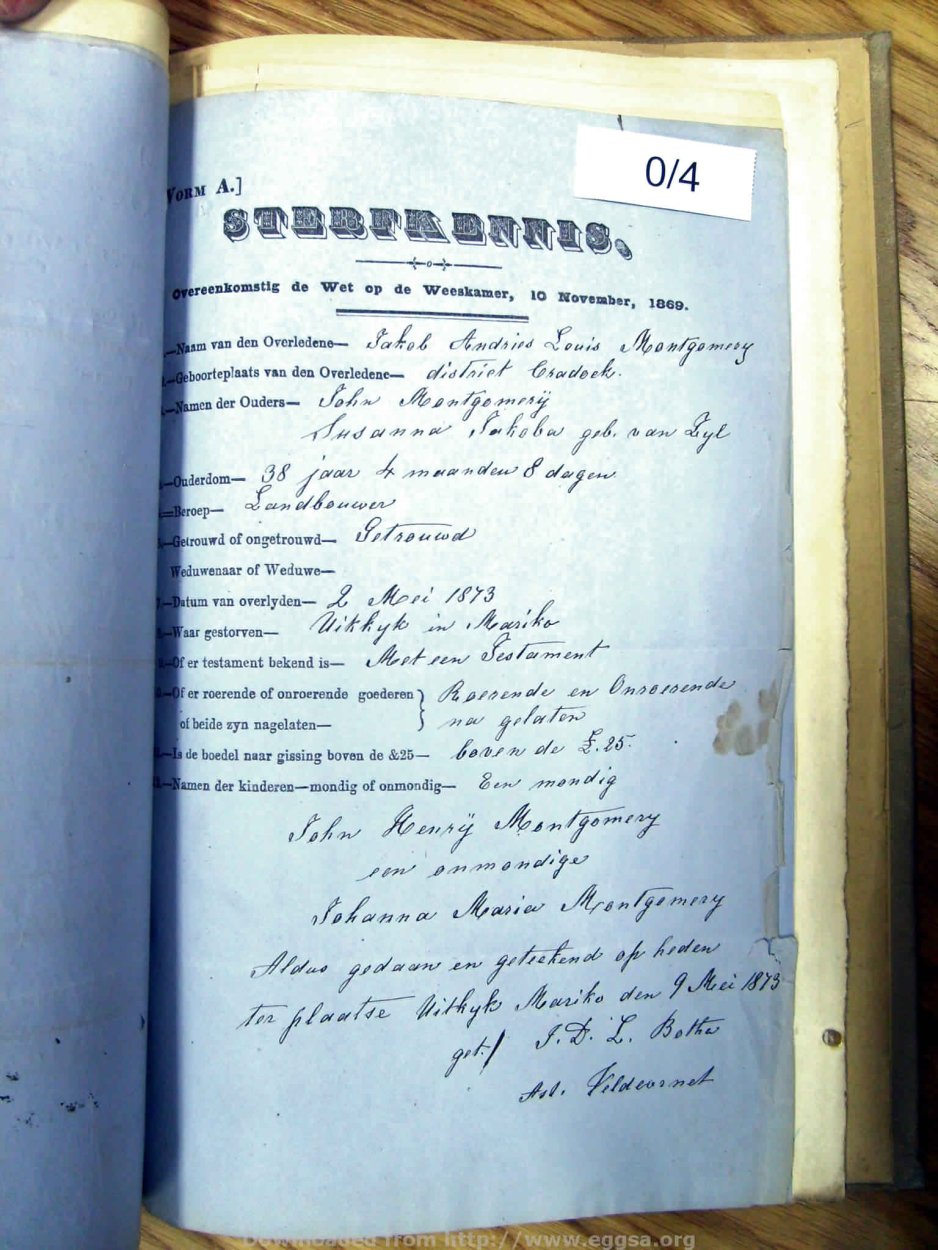 0/4
VORM A.]
STERFKENNIS.
Overeenkomstig de Wet op de Weeskamer, 10 November, 1869.
—Naam van den Overledene— Jakob Andries Louis Montgomery
—Geboorteplaats van den Overledene— district Cradock.
—Namen der Ouders— John Montgomerÿ
Susanna Jakoba geb. van Zyl
—Ouderdom— 38 jaar 4 maanden 8 dagen
—Beroep— Landbouwer
—Getrouwd of ongetrouwd— Getrouwd
Weduwenaar of Weduwe—
—Datum van overlyden— 2 Mei 1873
—Waar gestorven— Uitkyk in Mariko
—Of er testament bekend is— Met een Testament
—Of er roerende of onroerende goederen } Roerende en Onroerende
of beide zyn nagelaten— na gelaten
—Is de boedel naar gissing boven de &25— boven de £.25.
—Namen der kinderen—mondig of onmondig— Een mondig
John Henrÿ Montgomery
een onmondige
Johanna Maria Montgomery
Aldus gedaan en geteekend op heden
ter plaatse Uitkyk Mariko den 9 Mei 1873
get./ J. D. L. Botha
Ast. Veldcornet
Downloaded from http://www.eggsa.org